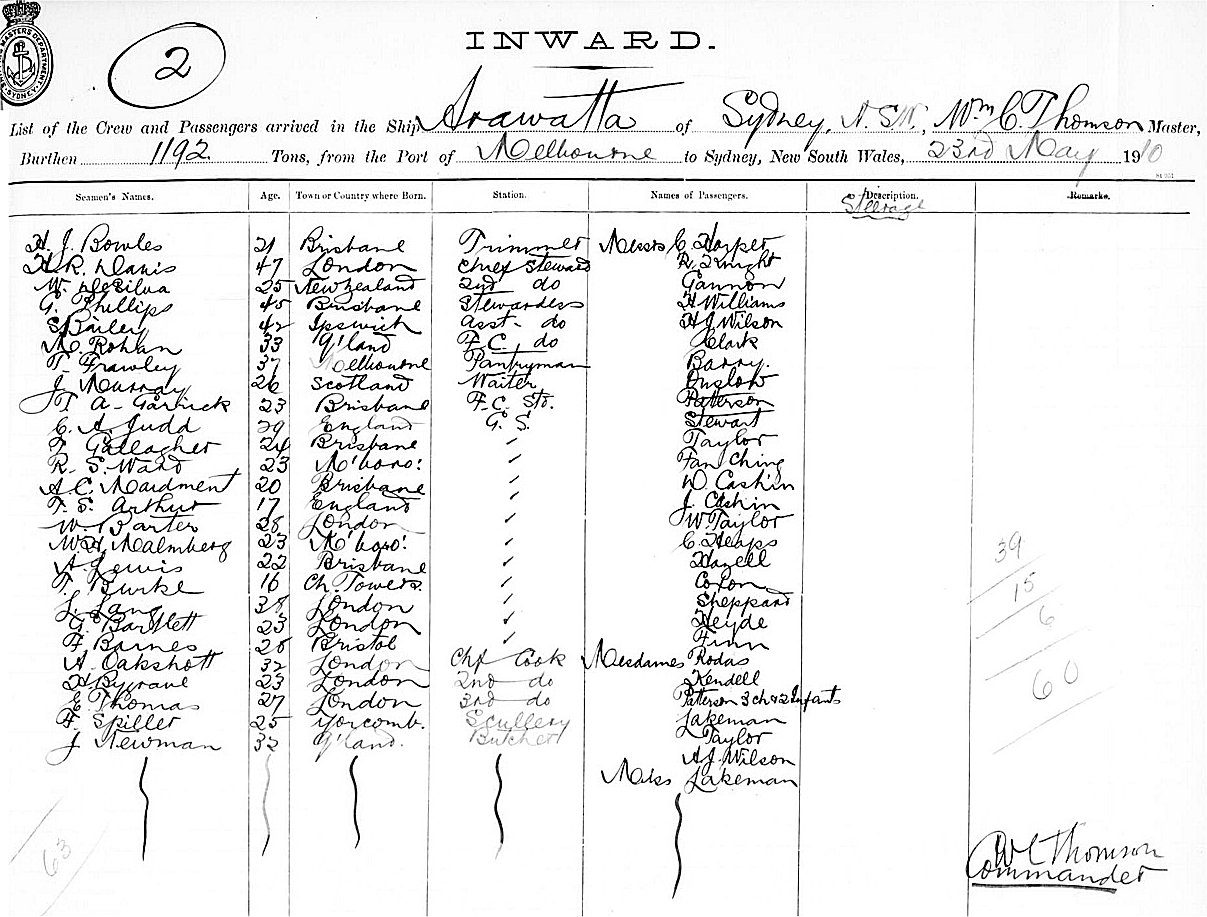 2
INWARD.
List of the Crew and Passengers arrived in the Ship Arawatta of Sydney, N.S.W., Wm C. Thomson Master,
Burthen 1192 Tons, from the Port of Melbourne to Sydney, New South Wales, 23rd May 1910
Seamen's Names. Age. Town or Country where Born. Station. Names of Passengers. Description. Remarks.
Steerage
H. J. Bowles 21 Brisbane Trimmer Messrs C. Harper
H. R. Davis 47 London Chief Steward R. Knight
W. DeSilva 25 New Zealand 2nd do Gannon
G. Phillips 45 Brisbane Stewardess H Williams
S Bailey 42 Ipswich Asst- do H J Wilson
M. Rohan 33 Q'land F.C. do Clark
T. Frawley 37 Melbourne Pantryman Barry.
J. Murray 26 Scotland Waiter Onslow
T. A. Garrick 23 Brisbane F.C. Sto. Paterson
C. A. Judd 29 England G.S. Stewart
F. Gallagher 24 Brisbane Taylor
R. S. Ward 23 M'boro' Fan Ching
A. C. Maidment 20 Brisbane W. Cashin
F. S. Arthur 17 England J. Cashin
W. Barter 28 London W. Taylor
W. H. Malmberg 23 M'boro' C. Heaps
A. Lewis 22 Brisbane Hazell
T. Burke 16 Ch. Towers. Coxon
J. Lang 38 London Sheppard
G. Bartlett 23 London Heyde
F. Barnes 28 Bristol Finn
A. Oakshott 32 London Chf Cook Mesdames Rodas
H Bygrave 23 London 2nd do Kendell
E Thomas 27 London 3rd do Paterson 3 ch & 2 Infants
F. Spiller 25 Yorcomb. Scullery Lakeman
J. Newman 32 Q'land. Butcher Taylor
A. J. Wilson
Miss Lakeman
39
15
6
60
63
W C Thomson
Commander